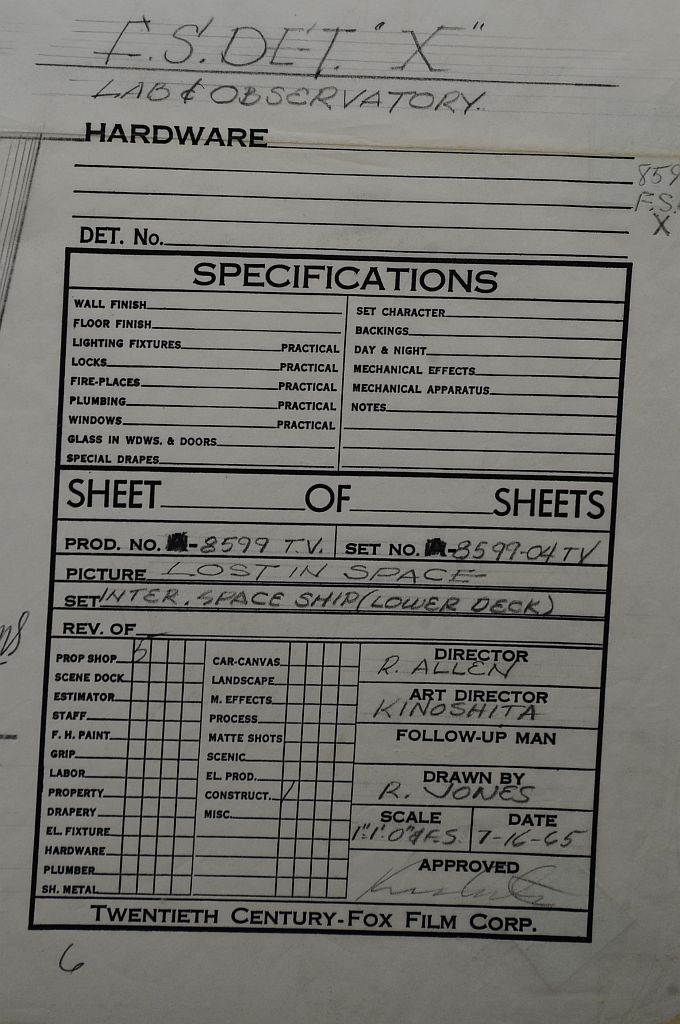 F.S. DET. "X"
LAB & OBSERVATORY.
HARDWARE
859
F.S.
X
DET. No.
SPECIFICATIONS
WALL FINISH
FLOOR FINISH
LIGHTING FIXTURES PRACTICAL
LOCKS PRACTICAL
FIRE-PLACES PRACTICAL
PLUMBING PRACTICAL
WINDOWS PRACTICAL
GLASS IN WDWS. & DOORS
SPECIAL DRAPES
SET CHARACTER
BACKINGS
DAY & NIGHT
MECHANICAL EFFECTS
MECHANICAL APPARATUS
NOTES
SHEET OF SHEETS
PROD. NO. -8599 T.V. SET NO. -8599-04 TV
PICTURE LOST IN SPACE
SET INTER. SPACE SHIP (LOWER DECK)
REV. OF
PROP SHOP 5
SCENE DOCK
ESTIMATOR
STAFF
F. H. PAINT
GRIP
LABOR
PROPERTY
DRAPERY
EL. FIXTURE
HARDWARE
PLUMBER
SH. METAL
CAR-CANVAS
LANDSCAPE
M. EFFECTS
PROCESS
MATTE SHOTS
SCENIC
EL. PROD.
CONSTRUCT.
MISC.
DIRECTOR
R. ALLEN
ART DIRECTOR
KINOSHITA
FOLLOW-UP MAN
DRAWN BY
R. JONES
SCALE
1"=1'-0" & F.S.
DATE
7-16-65
APPROVED
TWENTIETH CENTURY-FOX FILM CORP.
6